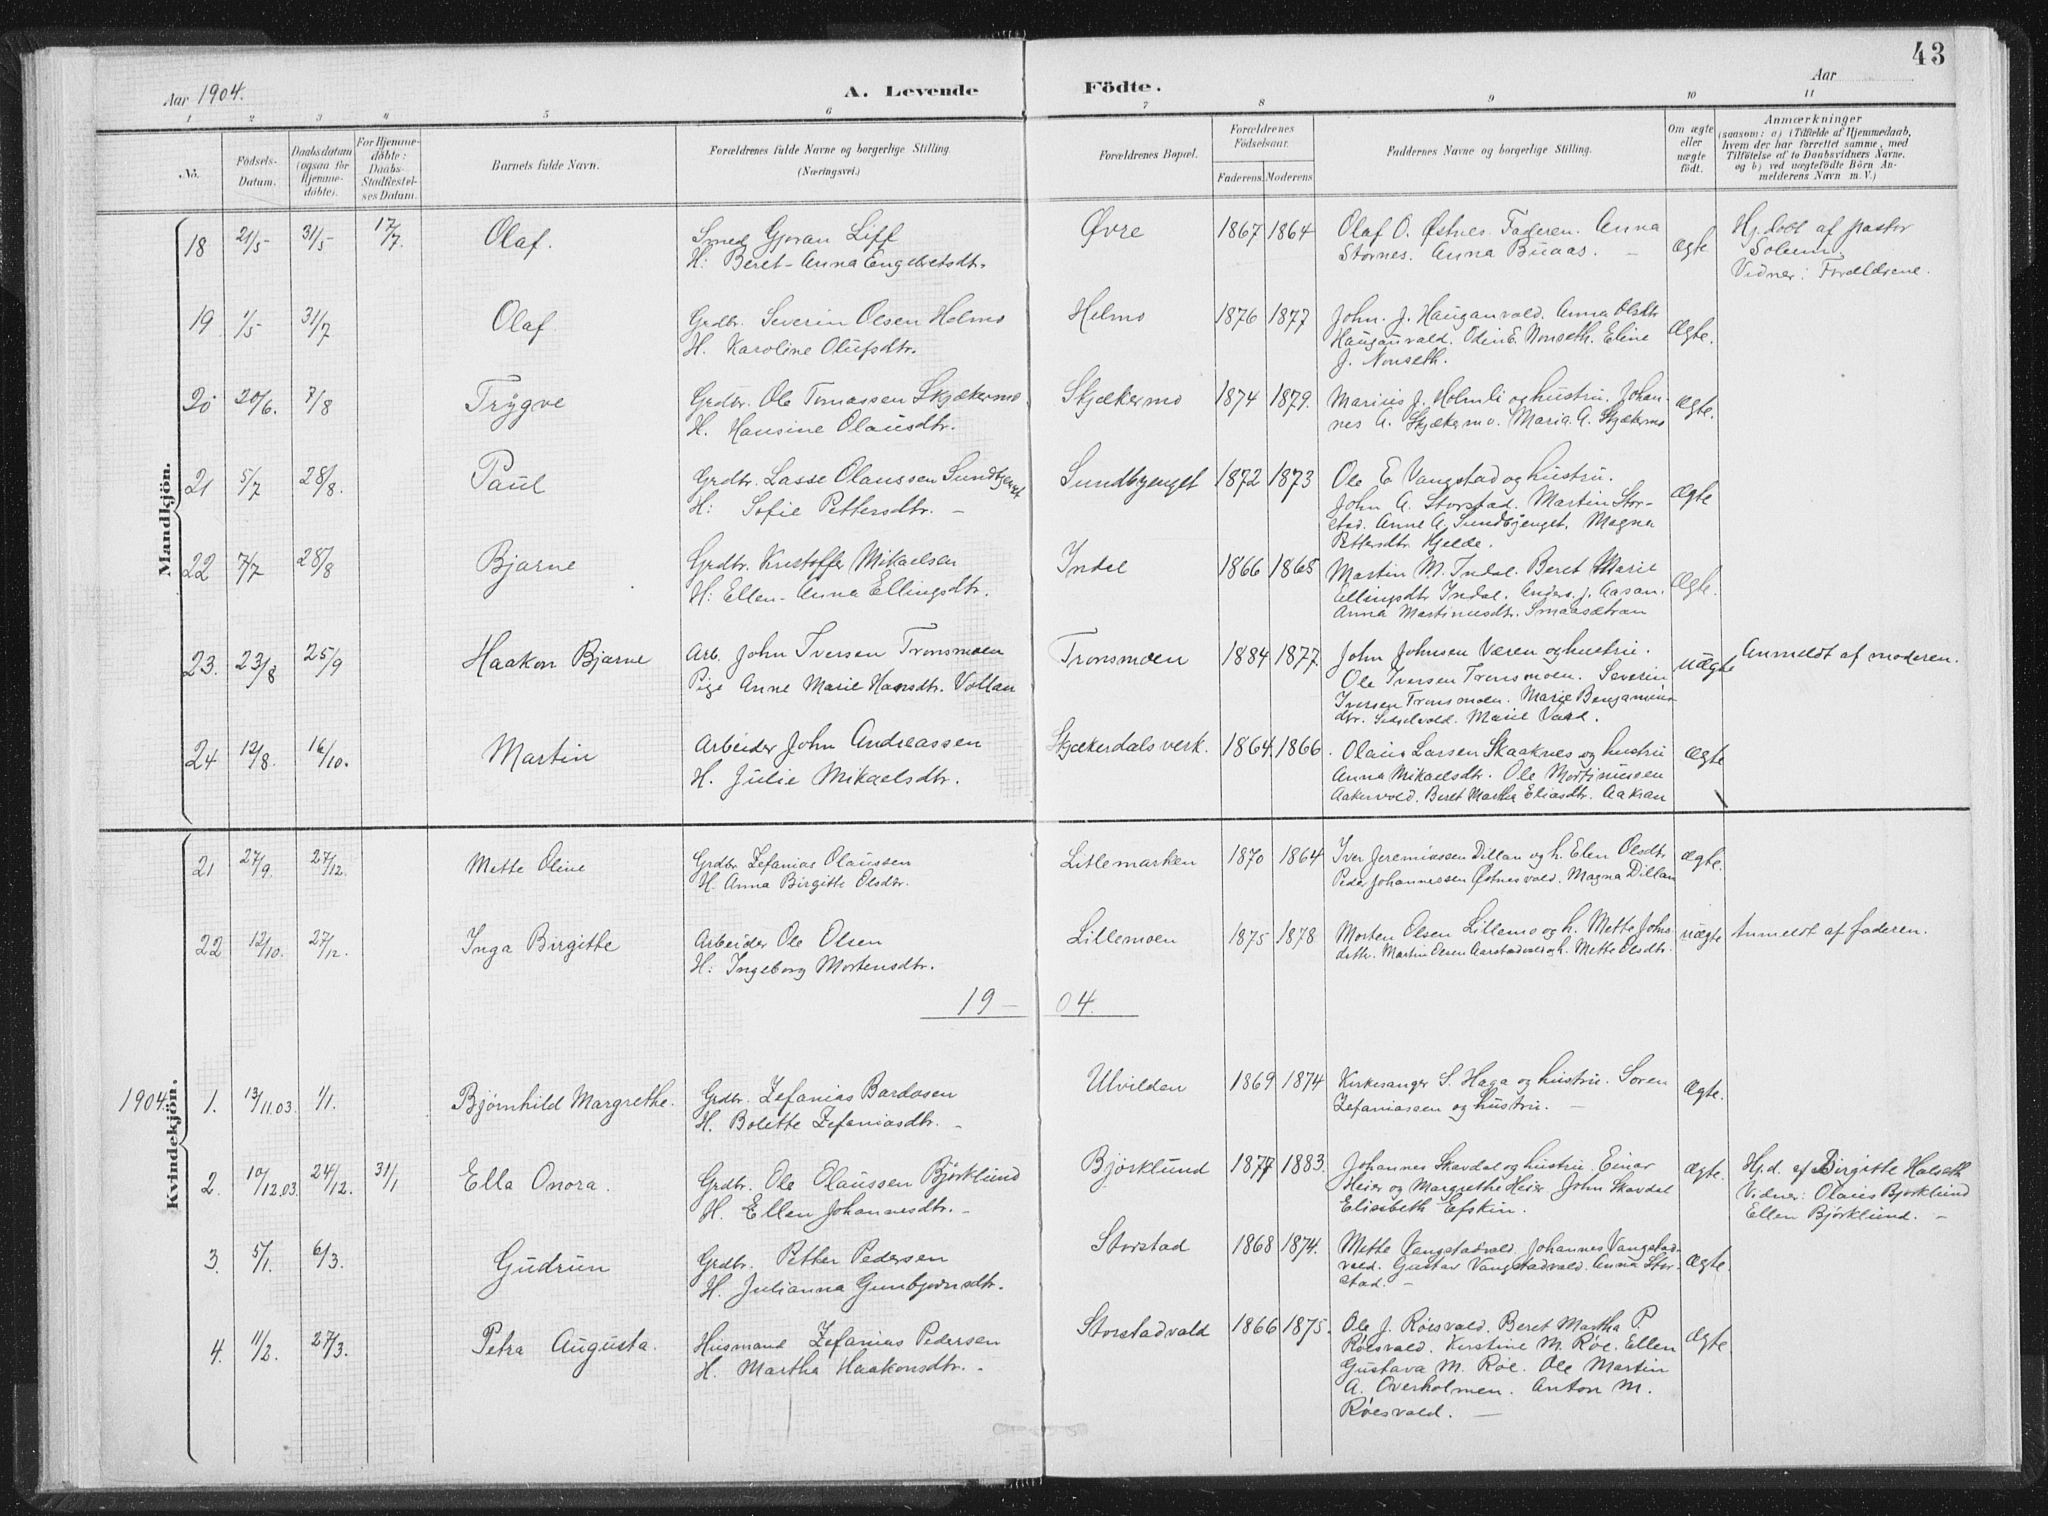 43
Aar 1904.
A. Levende Födte.
Aar
1 2 3 4 5 6 7 8 9 10 11
No.
Födsels-Datum.
Daabsdatum (ogsaa for Hjemme-döbte).
For Hjemme-döbte: Daabs-Stadfæstel-ses Datum.
Barnets fulde Navn.
Forældrenes fulde Navne og borgerlige Stilling. (Næringsvei.)
Forældrenes Bopæl.
Forældrenes Födselsaar.
Faderens. Moderens.
Faddernes Navne og borgerlige Stilling.
Om ægte eller uægte födt.
Anmærkninger
(saasom: a) i Tilfælde af Hjemmedaab, hvem der har forrettet samme, med Tilföielse af to Daabsvidners Navne, og b) ved uægtefödte Börn An-melderens Navn m. V.)
Mandkjön.
18 21/5 31/5 17/7. Olaf. Smed Gjoran Liff Øvre 1867 1864 Olaf O. Østnes. Faderen. Anna ægte Hj.döbt af pastor
H: Beret-Anna Engebretsdtr. Stornes. Anna Buaas. — Solem
Vidner: Forældrene.
19 1/5 31/7 Olaf. Grdbr. Severin Olsen Helmo Helmo 1876 1877 John. J. Hauganvald. Anna Olsdtr ægte.
H. Karoline Olufsdtr. Hauganvald. Odin E. Nonseth. Eline
J. Nonseth.
20 20/6. 7/8 Trygve Grdbr. Ole Tomassen Skjækermo Skjækermo 1874 1879. Marius J. Holmli og hustru. Johan- ægte.
H. Hansine Olausdtr. nes A. Skjækermo. Maria A. Skjækermo
21 5/7 28/8. Paul Grdbr. Lasse Olaussen Sundbyenget Sundbyenget 1872 1873 Ole E Vangstad og hustru. ægte
H: Sofie Pettersdtr. — John A. Storstad. Martin Stor-
stad. Anne A. Sundbyenget. Magna
Pettersdtr Hjelde.
22 7/7 28/8 Bjarne Grdbr. Kristoffer Mikaelsen Indal 1866 1865 Martin M. Indal. Beret Marie ægte.
H: Ellen-Anna Ellingsdtr. Ellingsdtr Indal. Anders. J. Aasan.
Anna Martinusdtr. Smaasætran
23. 23/8 25/9 Haakon Bjarne Arb. John Iversen Tronsmoen Tronsmoen 1884 1877. John Johnsen Væren og hustru. uægte Anmeldt af moderen.
Pige Anne Marie Hansdtr. Vollan Ole Iversen Tronsmoen. Severin
Iversen Tronsmoen. Marie Benjamins-
dtr. Sidselvold. Marie
24 12/8. 16/10. Martin Arbeider John Andreassen Skjækerdalsverk. 1864. 1866. Olaus Larsen Skaaknes og hustru ægte
H. Julie Mikaelsdtr. Anna Mikaelsdtr. Ole Mortinussen
Aakervold. Beret Martha Eliasdtr. Aakran
Kvindekjön.
21 27/9. 27/12. Mette Oline Grdbr Zefanias Olaussen Litlemarken 1870 1864 Iver Jeremiassen Dillan og h. Elen Olsdtr ægte.
H. Anna Birgitte Olsdtr. Peder Johannessen Østnesvald. Magna Dillan
22 12/10. 27/12. Inga Birgitte Arbeider Ole Olsen Lillemoen 1875 1878 Morten Olsen Lillemo og h. Mette Johns- uægte Anmeldt af faderen.
H: Ingeborg Mortensdtr. datter. Martin Olsen Aarstadvald og h. Mette Olsdtr.
19 — 04.
1904. 1. 13/11.03. 1/1. Bjørnhild Margrethe. Grdbr. Zefanias Bardosen Ulvilden 1869 1874 Kirkesanger S. Haga og hustru. Soren ægte.
H. Bolette Zefaniasdtr. - Zefaniassen og hustru. —
2. 10/12.03. 24/12. 31/1 Ella Onora. Grdbr. Ole Olaussen Björklund Bjørklund 1877 1883. Johannes Skavdal og hustru. Einar ægte. Hj.d. af Birgitte Halseth
H. Ellen Johannesdtr. - Heier og Margrethe Heier. John Skavdal Vidner: Olaus Bjorklund
Elisabeth Efskin. Ellen Björklund. -
3. 5/1. 6/3. Gudrun Grdbr. Petter Pedersen Storstad 1868 1874. Mette Vangstadvald. Johannes Vangstad- ægte.
H. Julianna Gunbjørnsdtr. vald. Gustav Vangstadvald. Anna Stor-
stad. -
4. 11/2. 27/3. Petra Augusta. Husmand Zefanias Pedersen Storstadvald 1866 1875. Ole J. Röesvald. Beret Martha P ægte
H. Martha Haakonsdtr. - Röesvald. Kirstine M. Röe. Ellen
Gustava M. Röe. Ole Martin
A. Overholmen. Anton M.
Röesvald. —